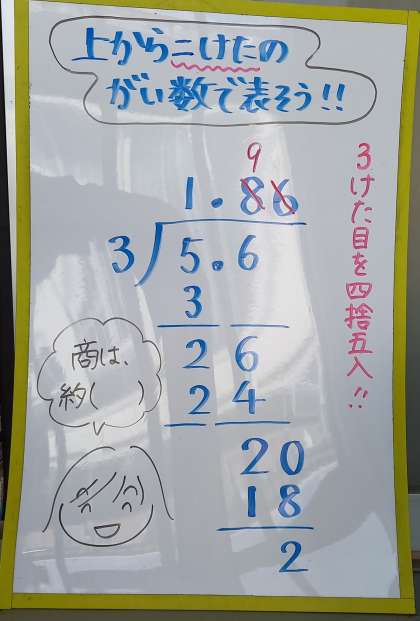 上から二けたの
がい数で表そう!!
9
1.86
3)5.6
3
26
24
20
18
2
商は、
約(　)
3けた目を四捨五入!!